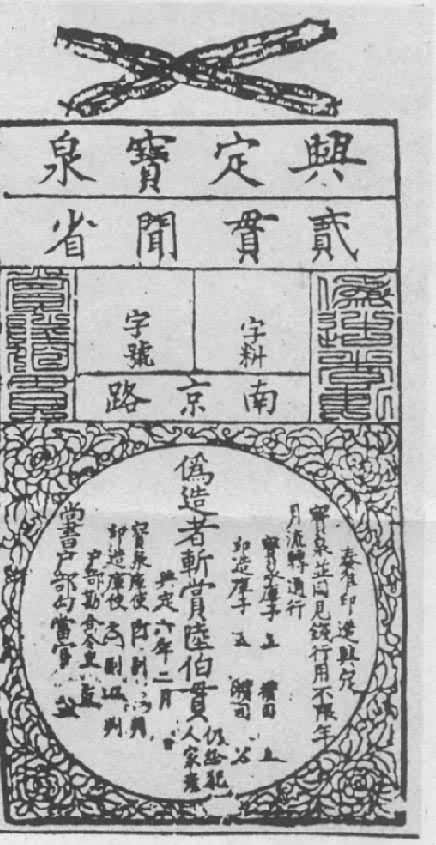 興定寶泉
貳貫聞省
字料
字號
偽造者斬
賞陸伯貫
南京路
奏准印造興定
寶泉並同見錢行用不限年
月流轉通行
寶泉庫子 攢司
印造庫子 攢司
偽造者斬賞陸伯貫
仍給犯
人家產
興定六年二月 日
寶泉庫使 副 判
印造庫使 副 判
尚書戶部勾當官